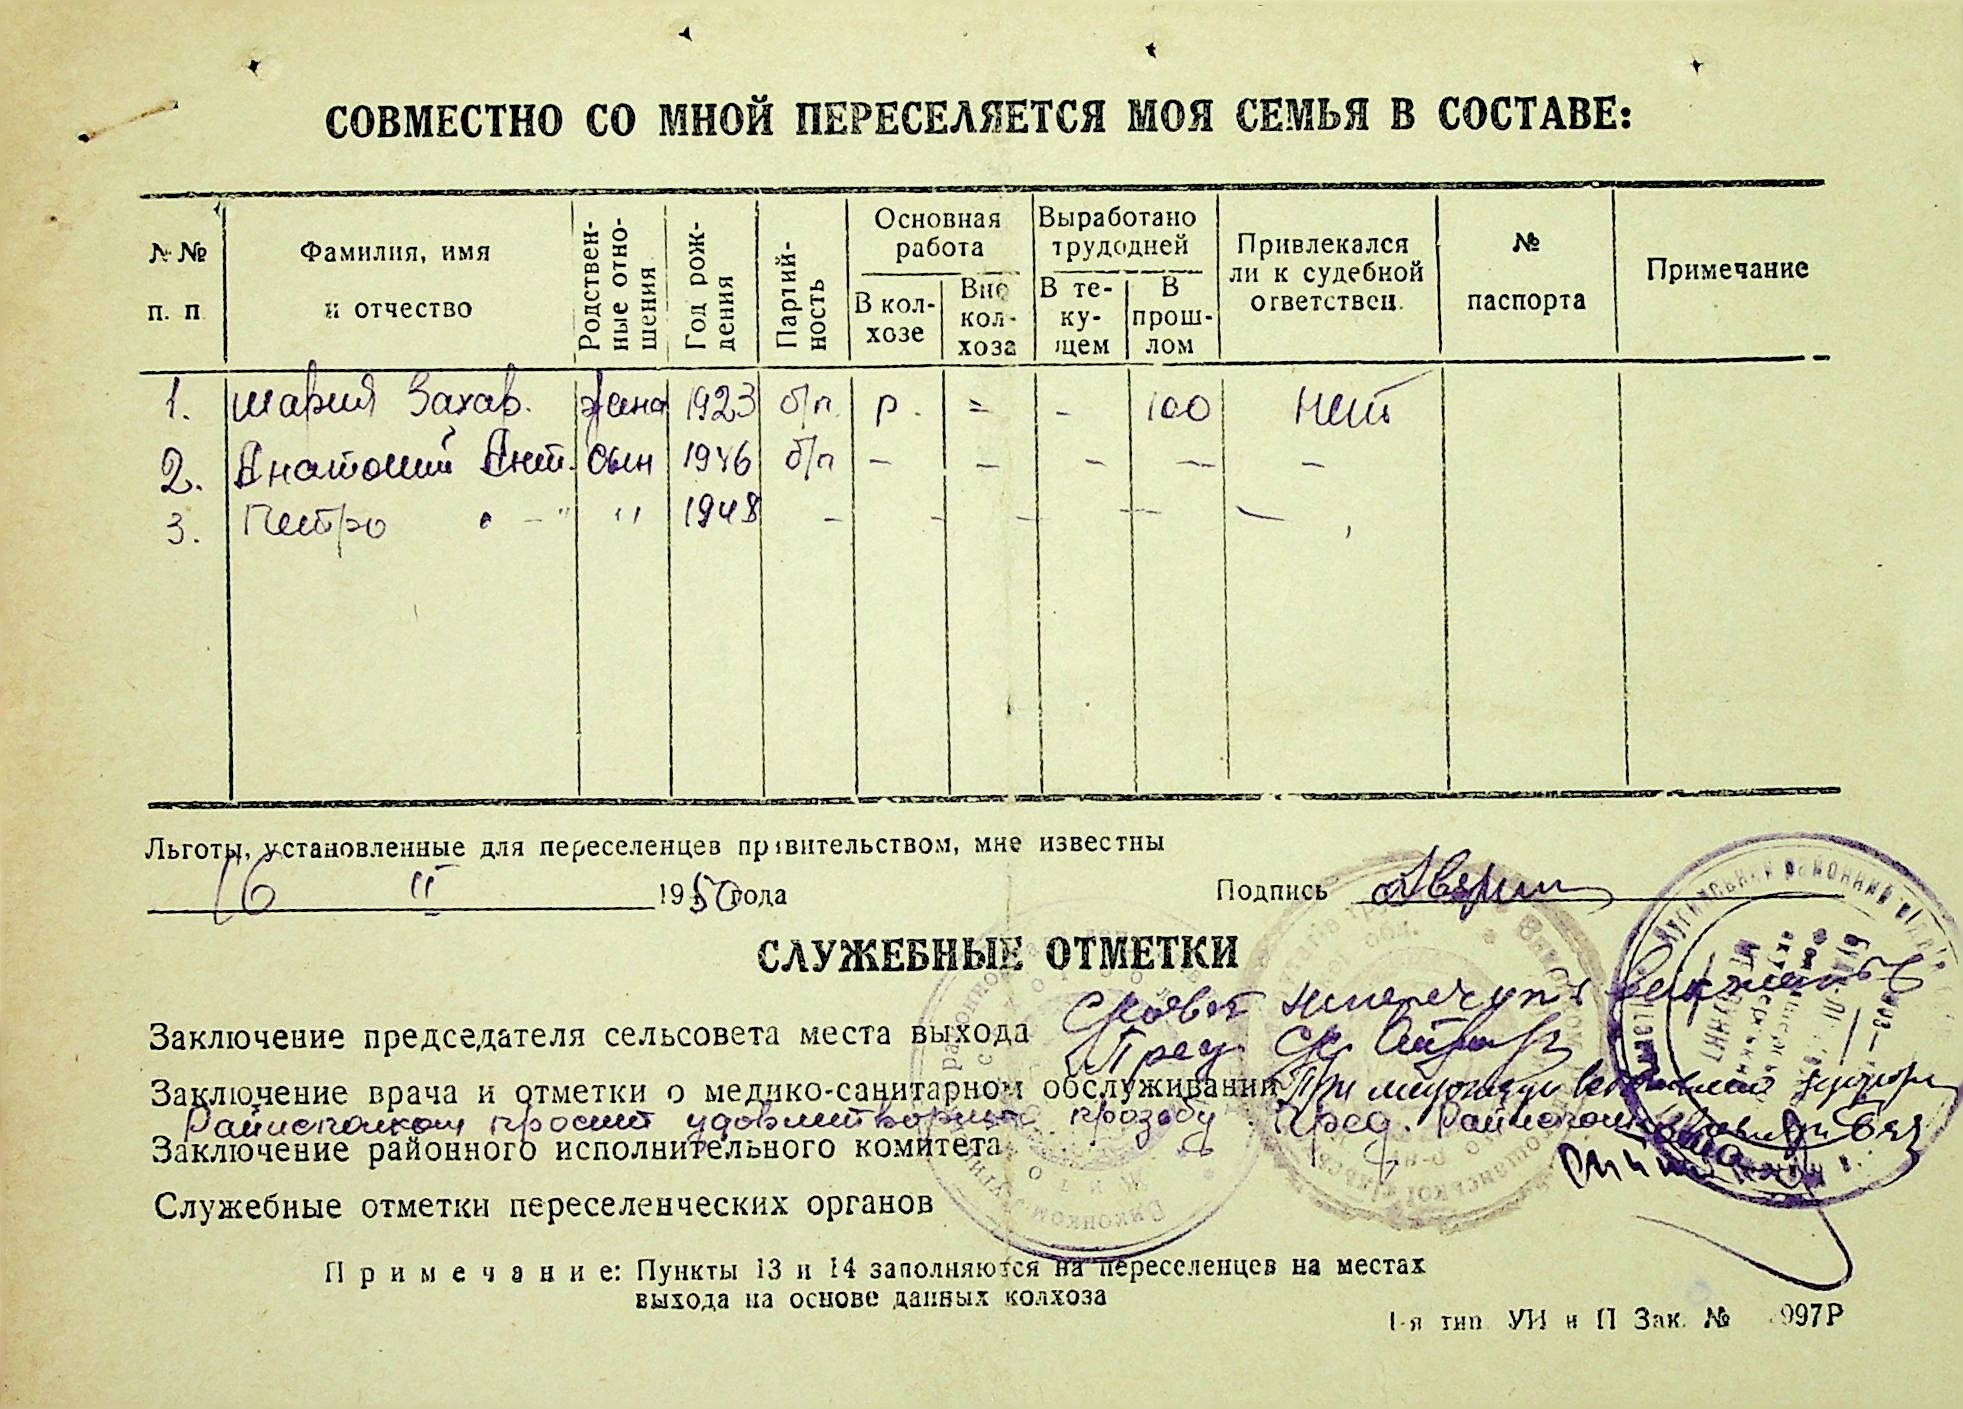 СОВМЕСТНО СО МНОЙ ПЕРЕСЕЛЯЕТСЯ МОЯ СЕМЬЯ В СОСТАВЕ:
№№ п. п
Фамилия, имя и отчество
Родственные отношения
Год рождения
Партийность
Основная работа
В колхозе
Вне колхоза
Выработано трудодней
В текущем
В прошлом
Привлекался ли к судебной ответствен.
№ паспорта
Примечание
1. Мария Захар. жена 1923 б/п. р. = - 100 нет
2. Анатолий Ант. сын 1946 б/п - - - - -
3. Петро - " " 1948 - - - - -
Льготы, установленные для переселенцев правительством, мне известны
16 II 1950 года
Подпись
СЛУЖЕБНЫЕ ОТМЕТКИ
Заключение председателя сельсовета места выхода
Пред.
Заключение врача и отметки о медико-санитарном обслуживании
Райисполком просит удовлетворить прозьбу Пред.
Заключение районного исполнительного комитета
Служебные отметки переселенческих органов
Примечание: Пункты 13 и 14 заполняются на переселенцев на местах
выхода на основе данных колхоза
1-я тип УИ и П Зак. № 997Р